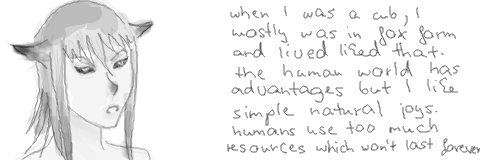 when I was a cub, I
mostly was in fox form
and lived liked that.
the human world has
advantages but I like
simple natural joys.
humans use too much
resources which won't last forever